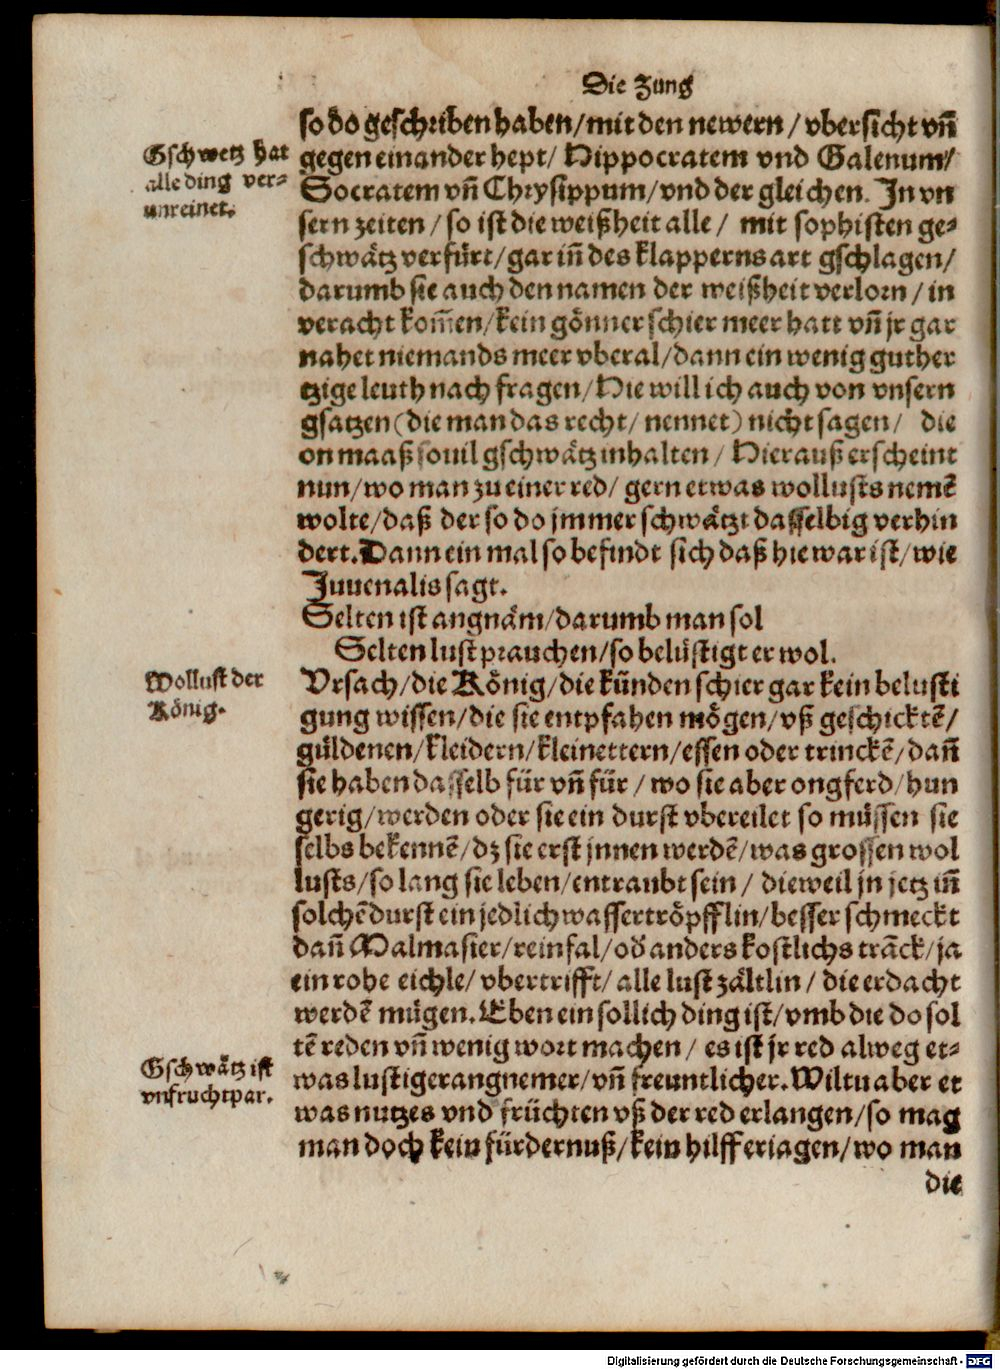 Die Zung
so do geschriben haben/mit den newern/vbersicht vñ
Gschwetz hat
alle ding ver-
unreinet.
gegen einander hept/Hippocratem vnd Galenum/
Socratem vñ Chrysippum/vnd der gleichen. In vn
sern zeiten/so ist die weißheit alle/ mit sophisten ge-
schwätz verfürt/gar iñ des klapperns art gschlagen/
darumb sie auch den namen der weißheit verlorn/in
veracht kom̃en/kein gönner schier meer hatt vñ jr gar
nahet niemands meer vberal/dann ein wenig guther
tzige leuth nach fragen/Hie will ich auch von vnsern
gsatzen(die man das recht/nennet)nicht sagen/ die
on maaß souil gschwätz inhalten/Hierauß erscheint
nun/wo man zu einer red/gern etwas wollusts nemẽ
wolte/daß der so do jmmer schwätzt dasselbig verhin
dert.Dann ein mal so befindt sich daß hie war ist/wie
Juuenalis sagt.
Selten ist angnäm/darumb man sol
Selten lust prauchen/so belüstigt er wol.
Wollust der
König.
Vrsach/die König/die künden schier gar kein belusti
gung wissen/die sie entpfahen mögen/vß geschicktẽ/
güldenen/kleidern/kleinettern/essen oder trinckẽ/dañ
sie haben dasselb für vñ für/wo sie aber ongferd/hun
gerig/werden oder sie ein durst vbereilet so müssen sie
selbs bekennẽ/dz sie erst jnnen werdẽ/was grossen wol
lusts/so lang sie leben/entraubt sein/ dieweil jn jetz iñ
solchẽ durst ein jedlich wassertröpfflin/besser schmeckt
dañ Malmasier/reinfal/oď anders kostlichs trãck/ja
ein rohe eichle/vbertrifft/alle lust zältlin/die erdacht
werdẽ mügen.Eben ein sollich ding ist/vmb die do sol
tẽ reden vñ wenig wort machen/es ist jr red alweg et-
Gschwätz ist
vnfruchtpar.
was lustiger angnemer/vñ freuntlicher.Wiltu aber et
was nutzes vnd früchten vß der red erlangen/so mag
man doch kein fürdernuß/kein hilff erjagen/wo man
die
Digitalisierung gefördert durch die Deutsche Forschungsgemeinschaft - DFG